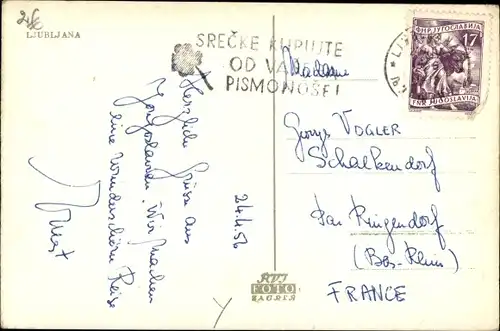 LJUBLJANA
SREČKE KUPUJTE
OD VAŠEGA
PISMONOŠE!
ФНР ЈУГОСЛАВИЈА
17
FNR JUGOSLAVIJA
Herzliche Grüsse aus
Yougoslawien. Wir machen
eine wunderschöne Reise
24.4.56
Madame
Georges VOGLER
Schalkendorf
par Ringendorf
(Bas-Rhin)
FRANCE
FOTO
ZAGREB